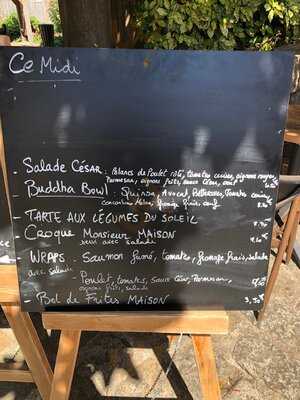 Ce Midi
- Salade César : Blancs de Poulet rôti, tomates cerises, oignons rouges,
Parmesan, oignons frits, sauce César, oeuf
- Buddha Bowl : Quinoa, Avocat, Betteraves, Tomates cerises
concombre, fromage frais, oeuf
- TARTE AUX LÉGUMES DU SOLEIL
- Croque Monsieur MAISON
servi avec salade
- WRAPS : Saumon fumé, tomate, fromage frais, salade
avec salade Poulet, tomates, sauce César, Parmesan,
oignons frits, salade
- Bol de Frites MAISON 3,50€